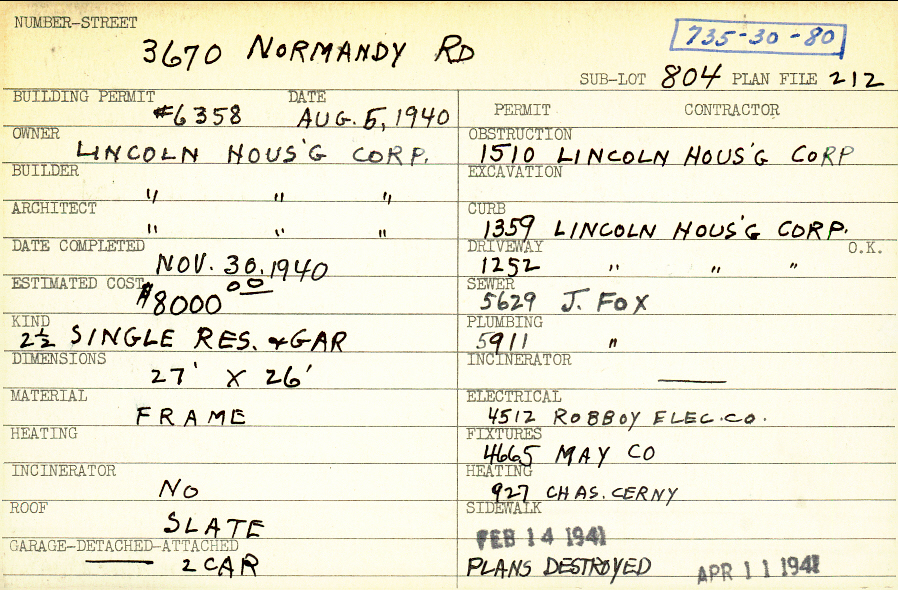 NUMBER-STREET
3670 NORMANDY RD
735-30-80
SUB-LOT 804 PLAN FILE 212
BUILDING PERMIT DATE
#6358 AUG. 5, 1940
OWNER
LINCOLN HOUS'G CORP.
BUILDER
" " "
ARCHITECT
" " "
DATE COMPLETED
NOV. 30, 1940
ESTIMATED COST
$8000 00
KIND
2½ SINGLE RES. & GAR
DIMENSIONS
27' X 26'
MATERIAL
FRAME
HEATING
INCINERATOR
NO
ROOF
SLATE
GARAGE-DETACHED-ATTACHED
—— 2 CAR
PERMIT CONTRACTOR
OBSTRUCTION
1510 LINCOLN HOUS'G CORP
EXCAVATION
CURB
1359 LINCOLN HOUS'G CORP.
DRIVEWAY O.K.
1252 " " "
SEWER
5629 J. FOX
PLUMBING
5911 "
INCINERATOR
——
ELECTRICAL
4512 ROBBOY ELEC. CO.
FIXTURES
4665 MAY CO
HEATING
927 CHAS. CERNY
SIDEWALK
FEB 14 1941
PLANS DESTROYED APR 11 1941